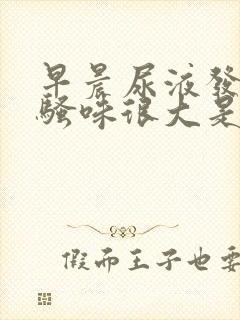 早晨尿液發
騷味很大是
假而王子也要